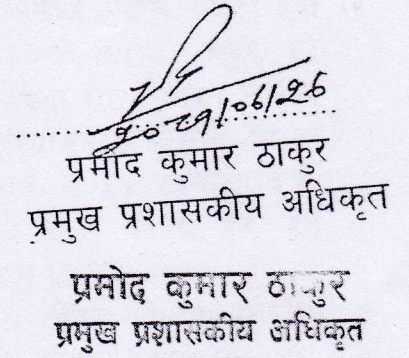 २०८१/०६/२६
प्रमोद कुमार ठाकुर
प्रमुख प्रशासकीय अधिकृत
प्रमोद कुमार ठाकुर
प्रमुख प्रशासकीय अधिकृत